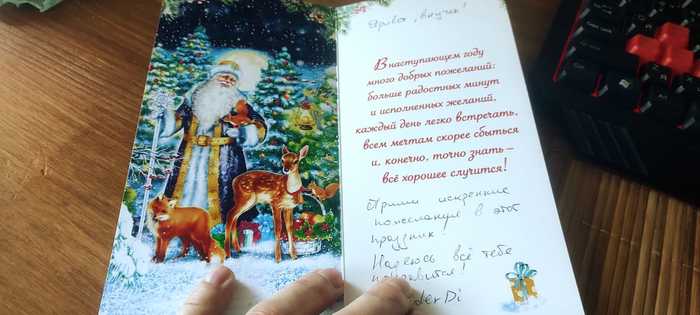 Привет, внучик!
В наступающем году
много добрых пожеланий:
больше радостных минут
и исполненных желаний,
каждый день легко встречать,
всем мечтам скорее сбыться
и, конечно, точно знать –
всё хорошее случится!
Прими искренние
пожелания в этот
праздник!
Надеюсь всё тебе
понравится!
derDi